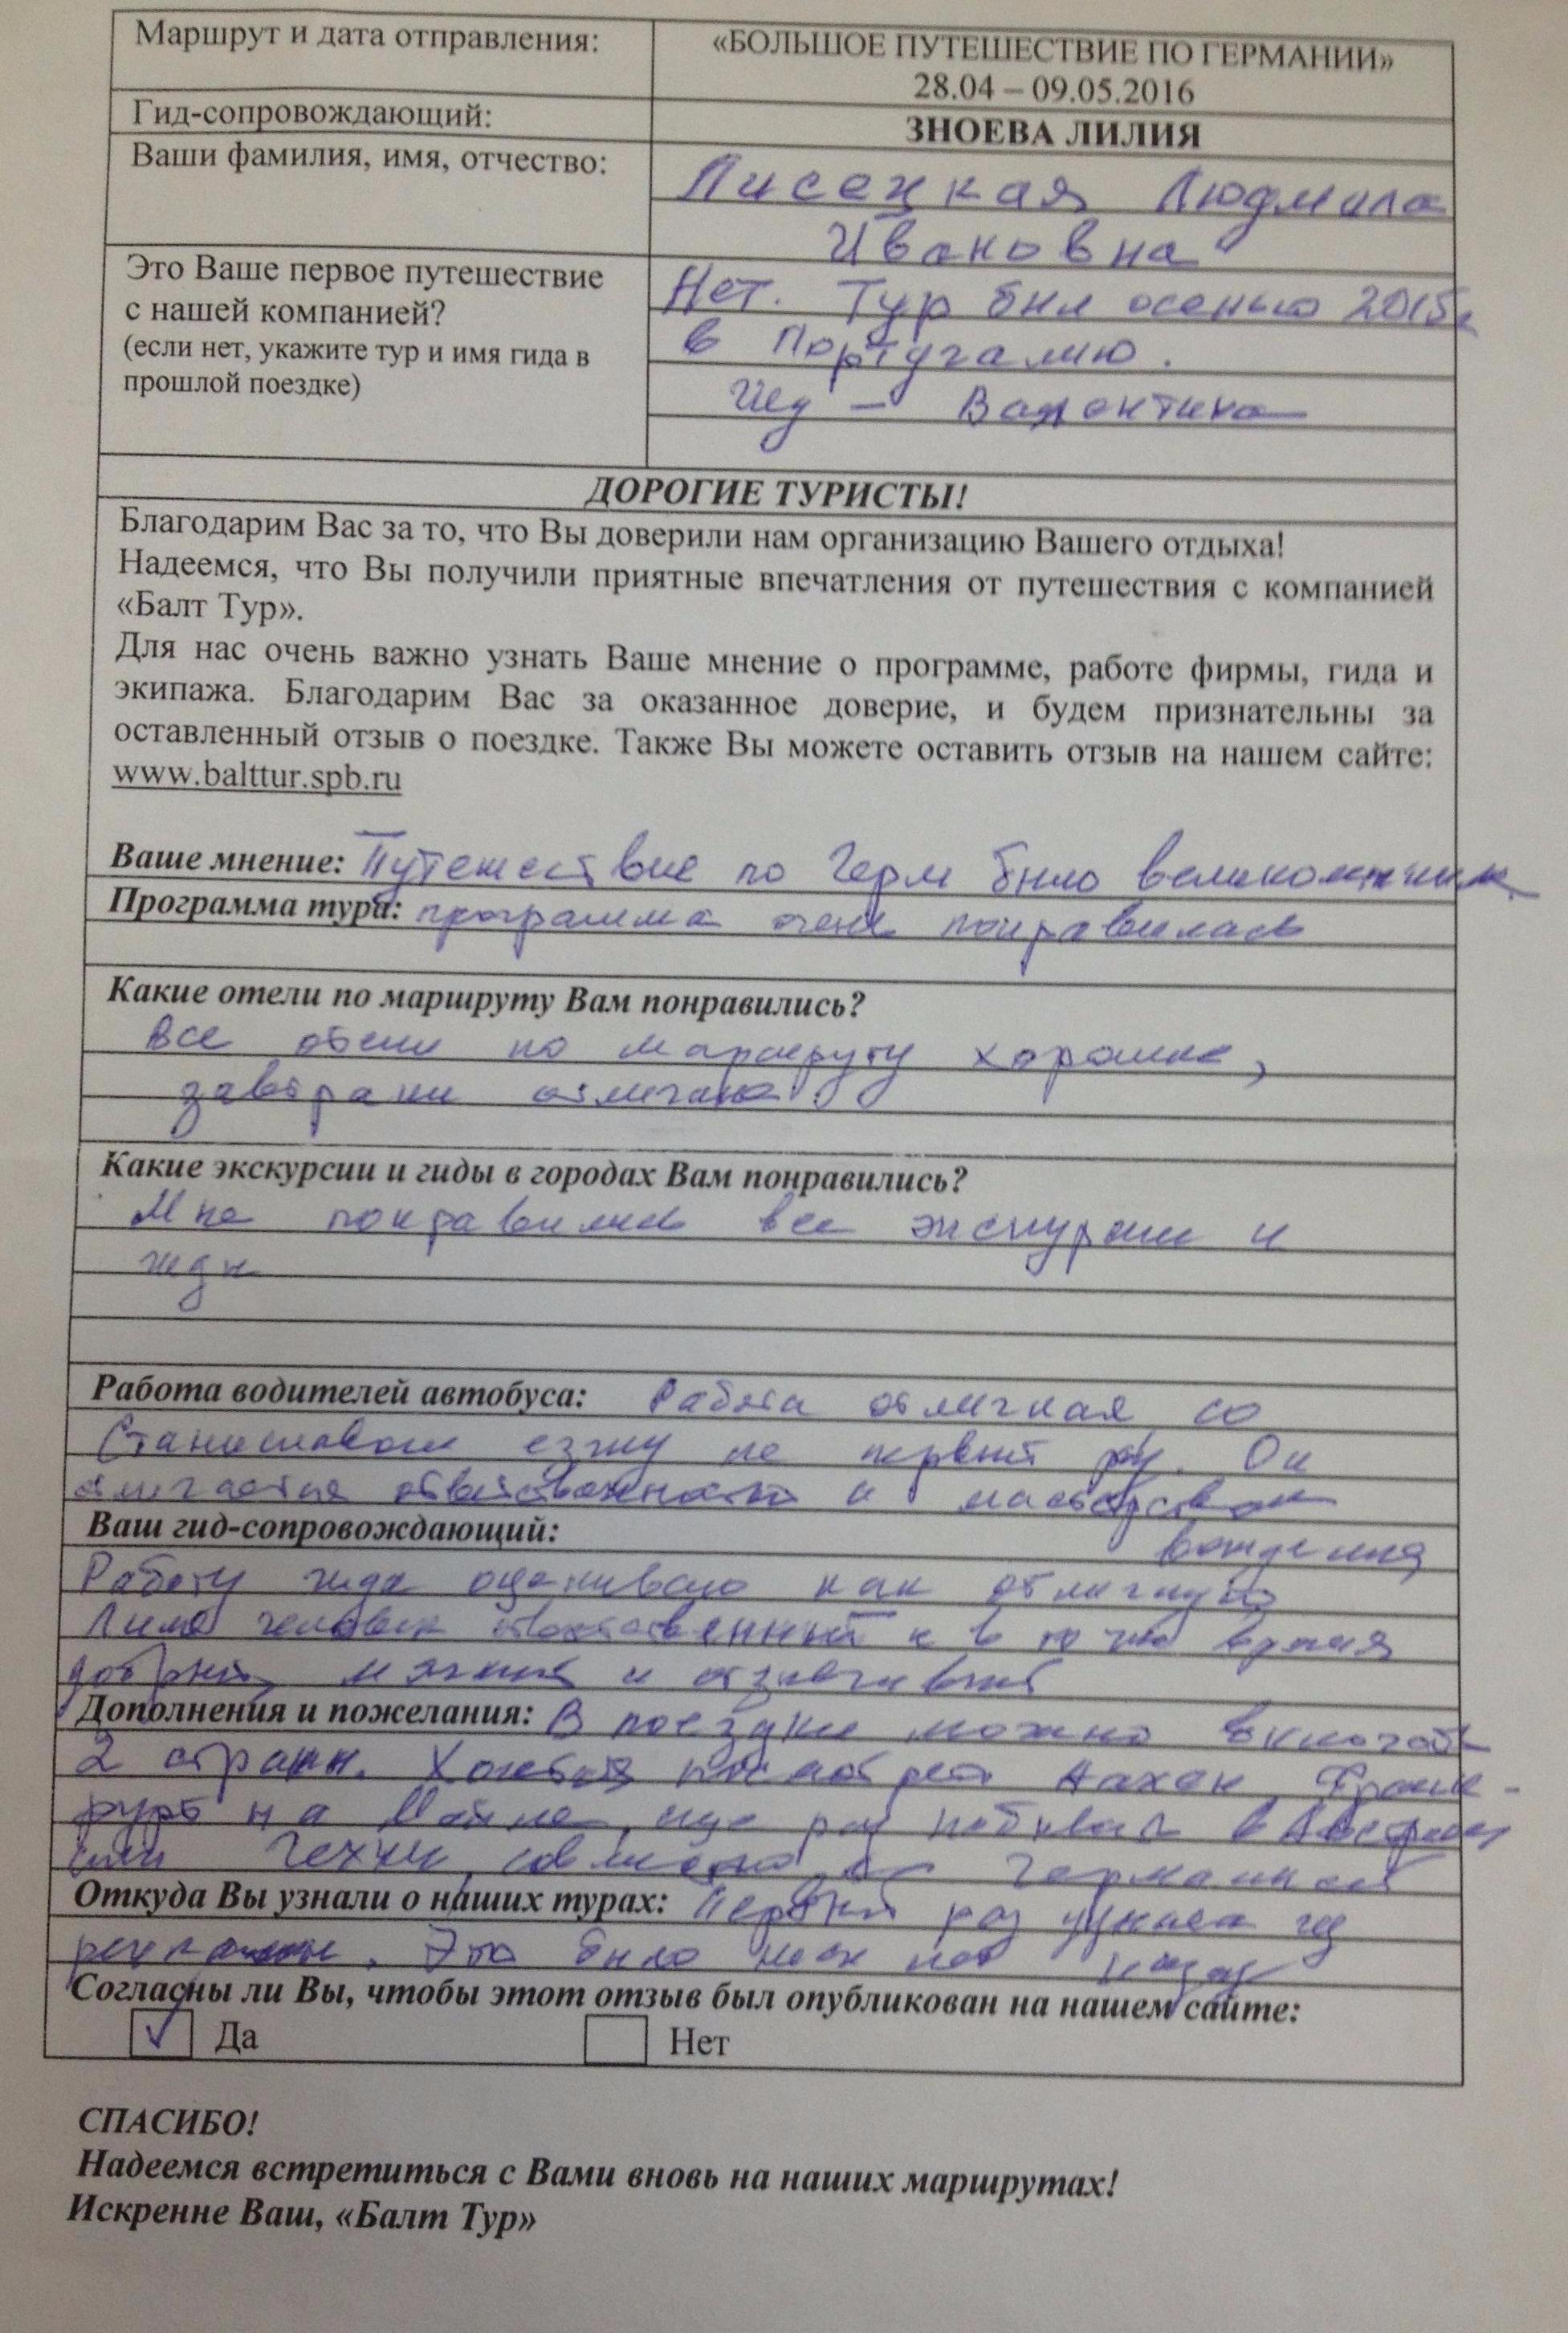 Маршрут и дата отправления:
«БОЛЬШОЕ ПУТЕШЕСТВИЕ ПО ГЕРМАНИИ»
28.04 – 09.05.2016
Гид-сопровождающий:
ЗНОЕВА ЛИЛИЯ
Ваши фамилия, имя, отчество:
Писецкая Людмила
Ивановна
Это Ваше первое путешествие
с нашей компанией?
(если нет, укажите тур и имя гида в
прошлой поездке)
Нет. Тур был осенью 2015г
в Португалию.
Гид – Валентина
ДОРОГИЕ ТУРИСТЫ!
Благодарим Вас за то, что Вы доверили нам организацию Вашего отдыха!
Надеемся, что Вы получили приятные впечатления от путешествия с компанией
«Балт Тур».
Для нас очень важно узнать Ваше мнение о программе, работе фирмы, гида и
экипажа. Благодарим Вас за оказанное доверие, и будем признательны за
оставленный отзыв о поездке. Также Вы можете оставить отзыв на нашем сайте:
www.balttur.spb.ru
Ваше мнение: Путешествие по Герм было
Программа тура: программа очень понравилась
Какие отели по маршруту Вам понравились?
Все отели по маршруту хорошие,
завтраки
Какие экскурсии и гиды в городах Вам понравились?
Мне понравились все экскурсии и
гиды
Работа водителей автобуса: Работа отличная, со
Станиславом езжу не первый раз. Он
отличается ответственностью и мастерством
вождения
Ваш гид-сопровождающий:
Работу гида оцениваю как отличную
Лиля человек ответственный и в то же время
добрый, мягкий и отзывчивый
Дополнения и пожелания: В поездки можно включать
2 страны. Хочется посмотреть Аахен, Франк-
фурт на Майне, еще раз побывать в Австрии
или Чехии, совместно с Германией
Откуда Вы узнали о наших турах: Первый раз узнала из
рекламы. Это было лет назад
Согласны ли Вы, чтобы этот отзыв был опубликован на нашем сайте:
✓ Да Нет
СПАСИБО!
Надеемся встретиться с Вами вновь на наших маршрутах!
Искренне Ваш, «Балт Тур»